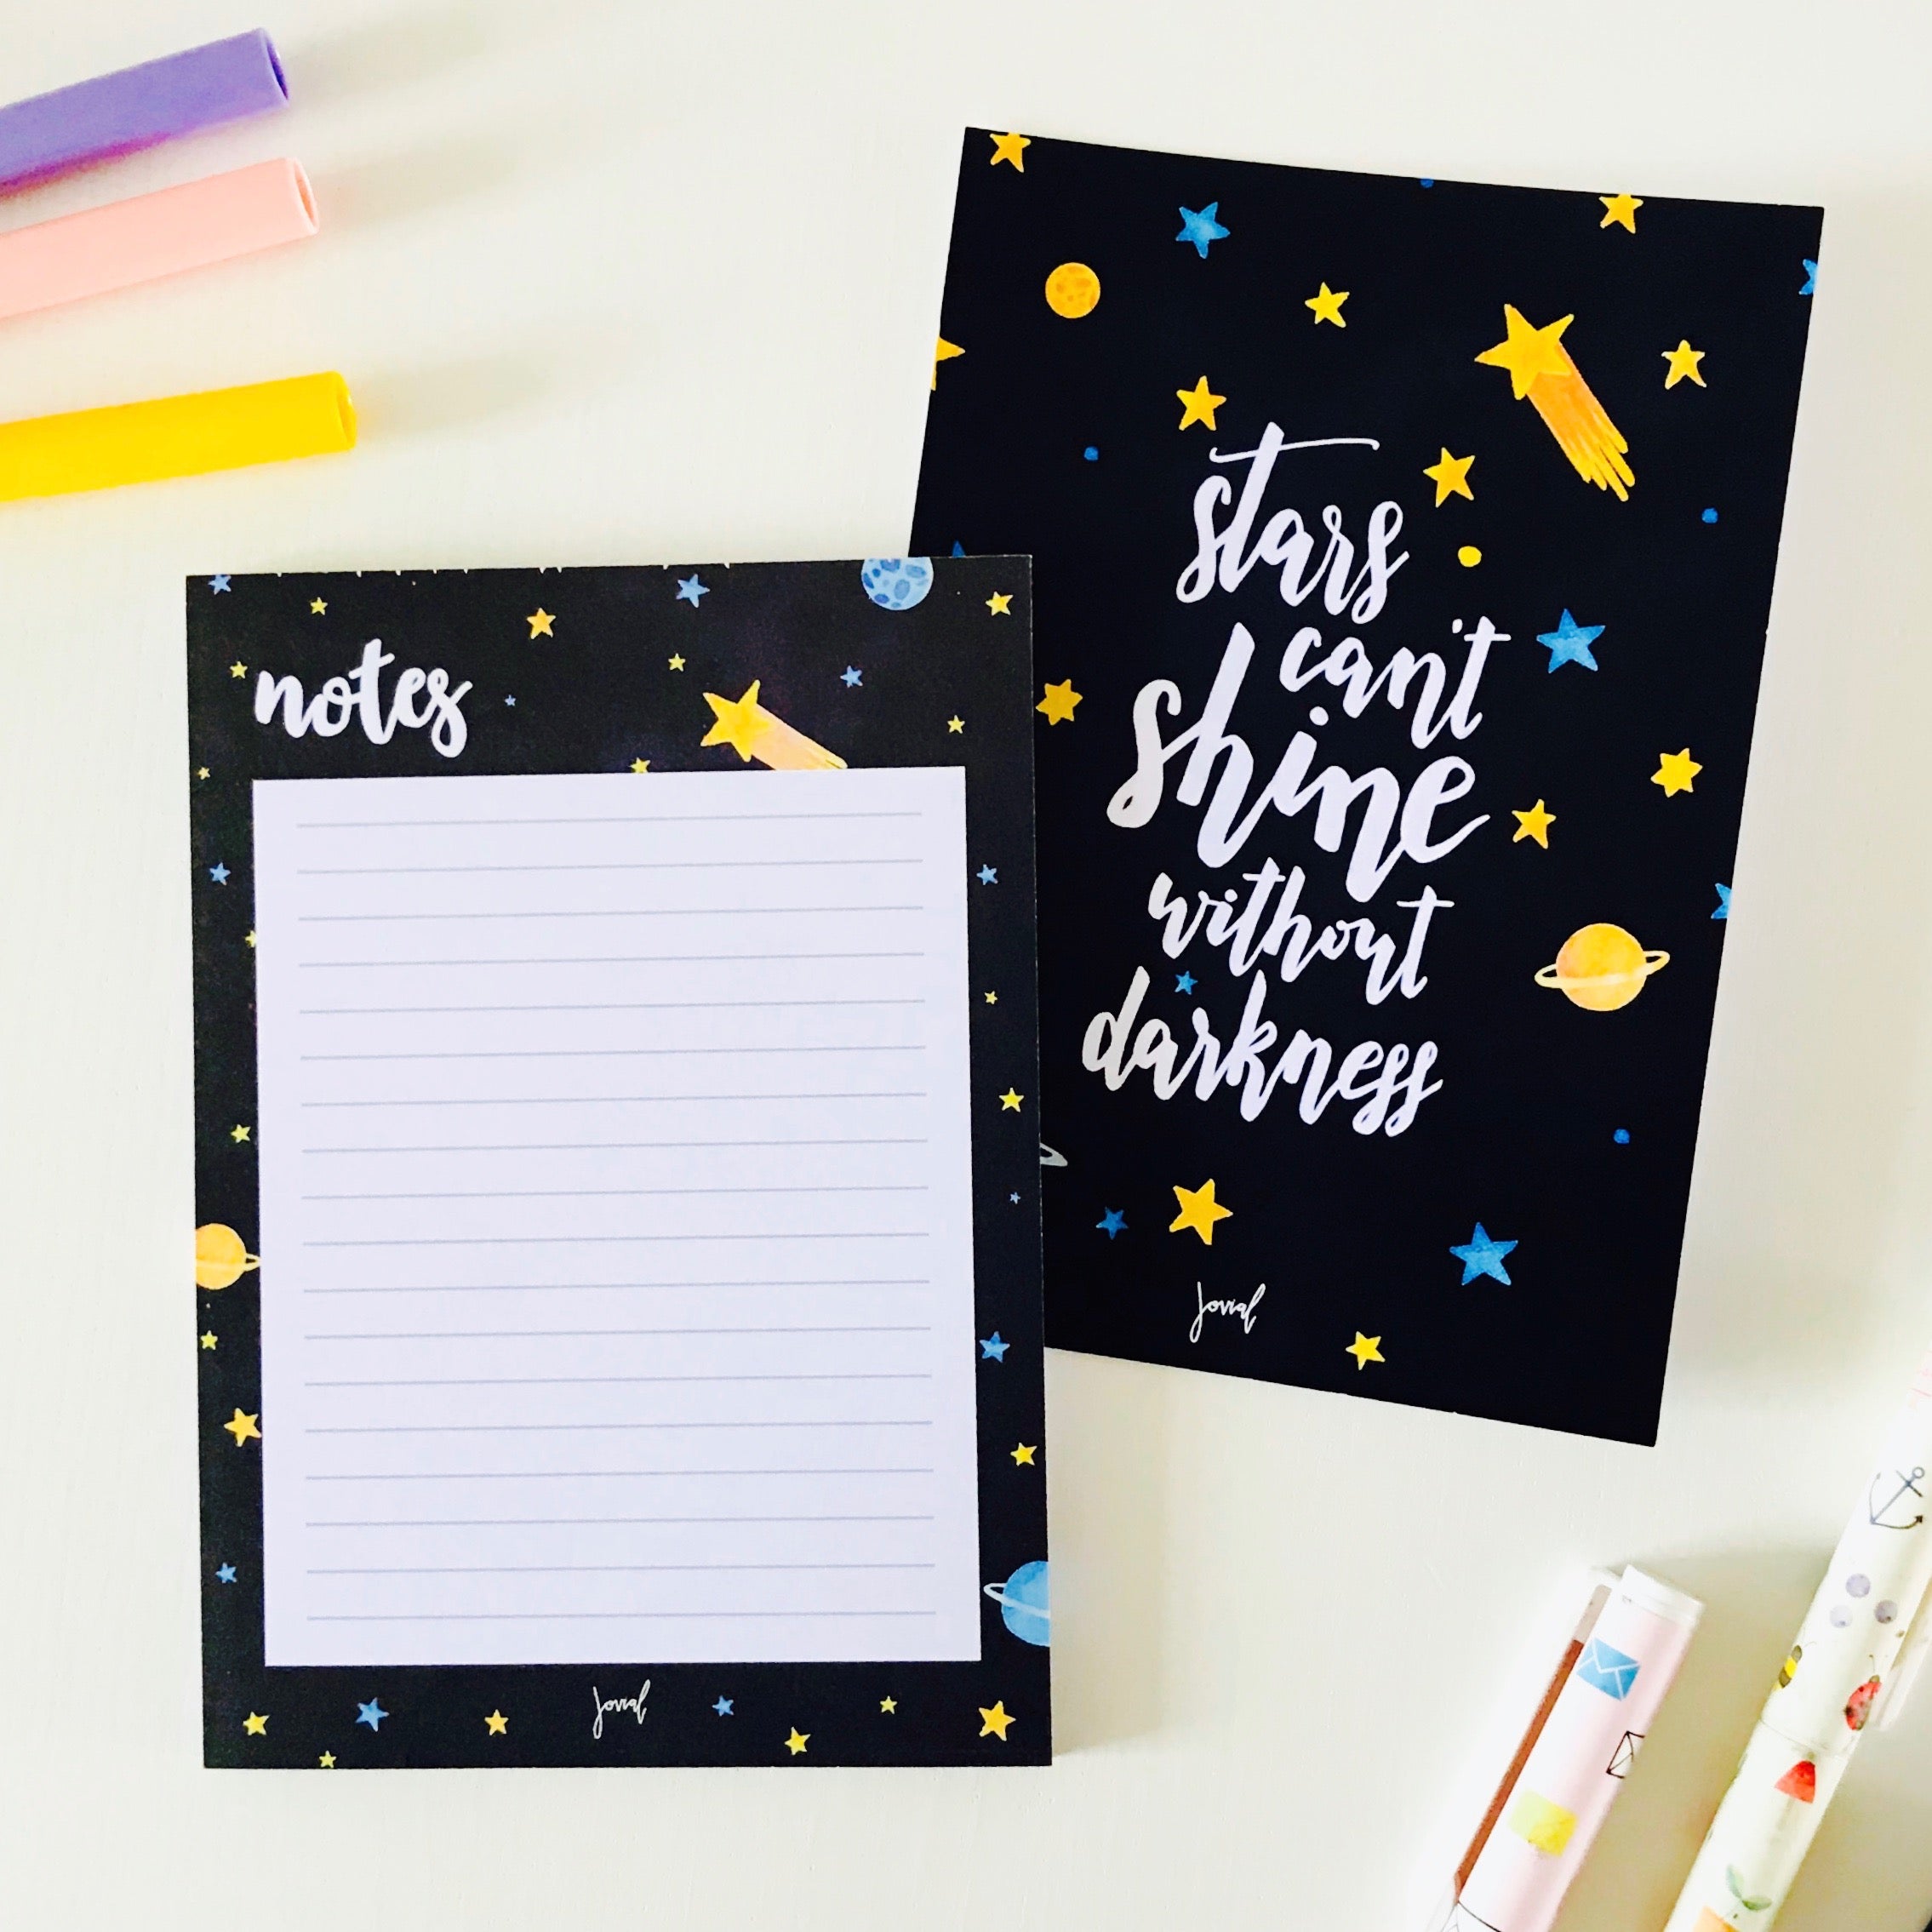 notes
Jovial
stars
can't
shine
without
darkness
Jovial